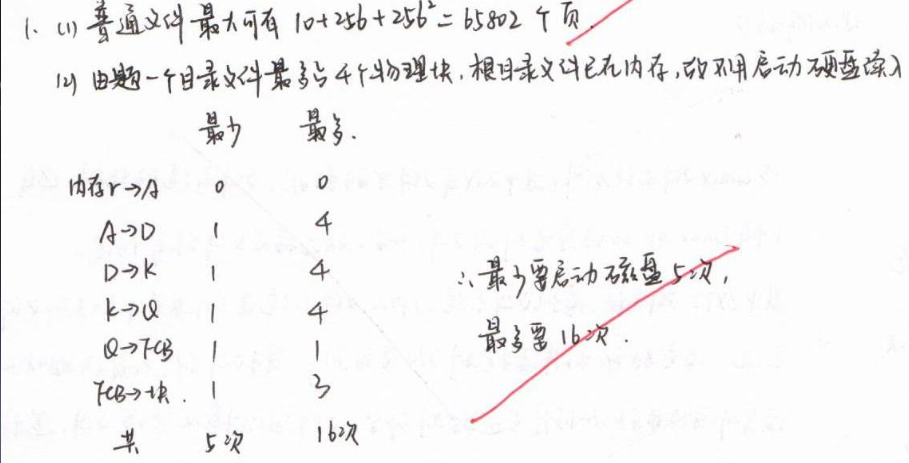 1. (1) 普通文件最大可有 10+256+256²=65802 个页.
(2) 由题一个目录文件最多占4个物理块,根目录文件已在内存,故不用启动硬盘读入
最少 最多.
内存r→A 0 0
A→D 1 4
D→K 1 4
K→Q 1 4
Q→FCB 1 1
FCB→块. 1 3
共 5次 16次
∴最少要启动磁盘5次,
最多要16次.